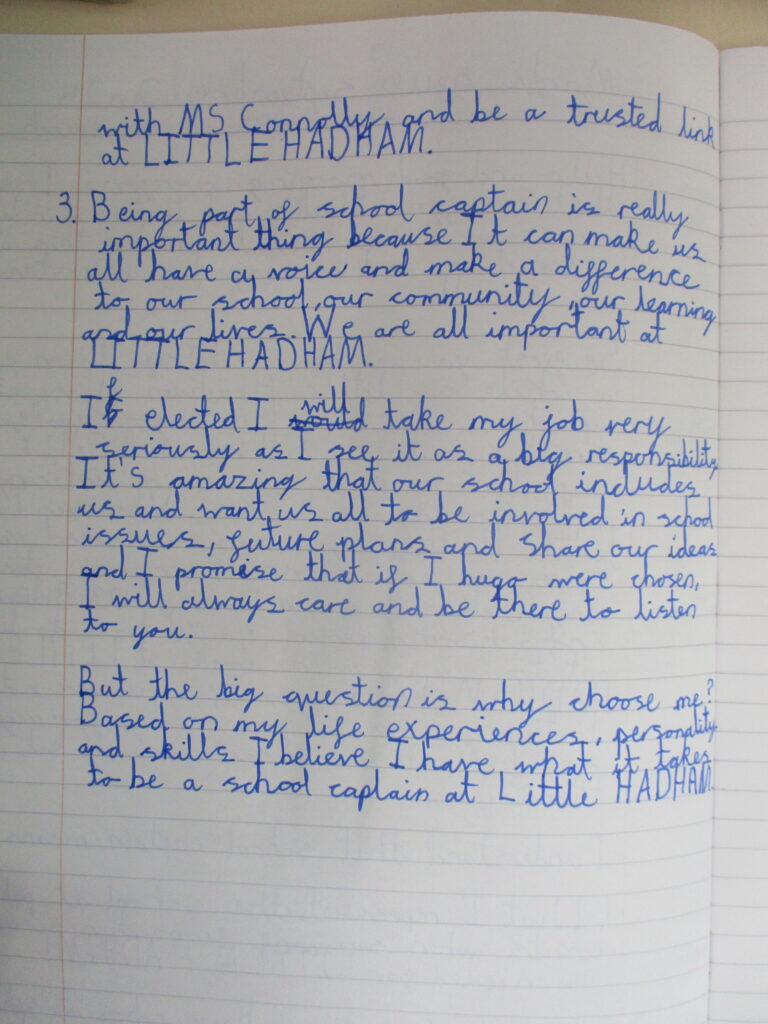 with MS Connolly, and be a trusted link
at LITTLE HADHAM.
3. Being part of school captain is really
important thing because It can make us
all have a voice and make a difference
to our school, our community, our learning
and our lives. We are all important at
LITTLE HADHAM.
If elected I will take my job very
seriously as I see it as a big responsibility.
It's amazing that our school includes
us and want us all to be involved in school
issues, future plans and share our ideas
and I promise that if I hugo were chosen,
I will always care and be there to listen
to you.
But the big question is why choose me?
Based on my life experiences, personality
and skills I believe I have what it takes
to be a school captain at Little HADHAM.